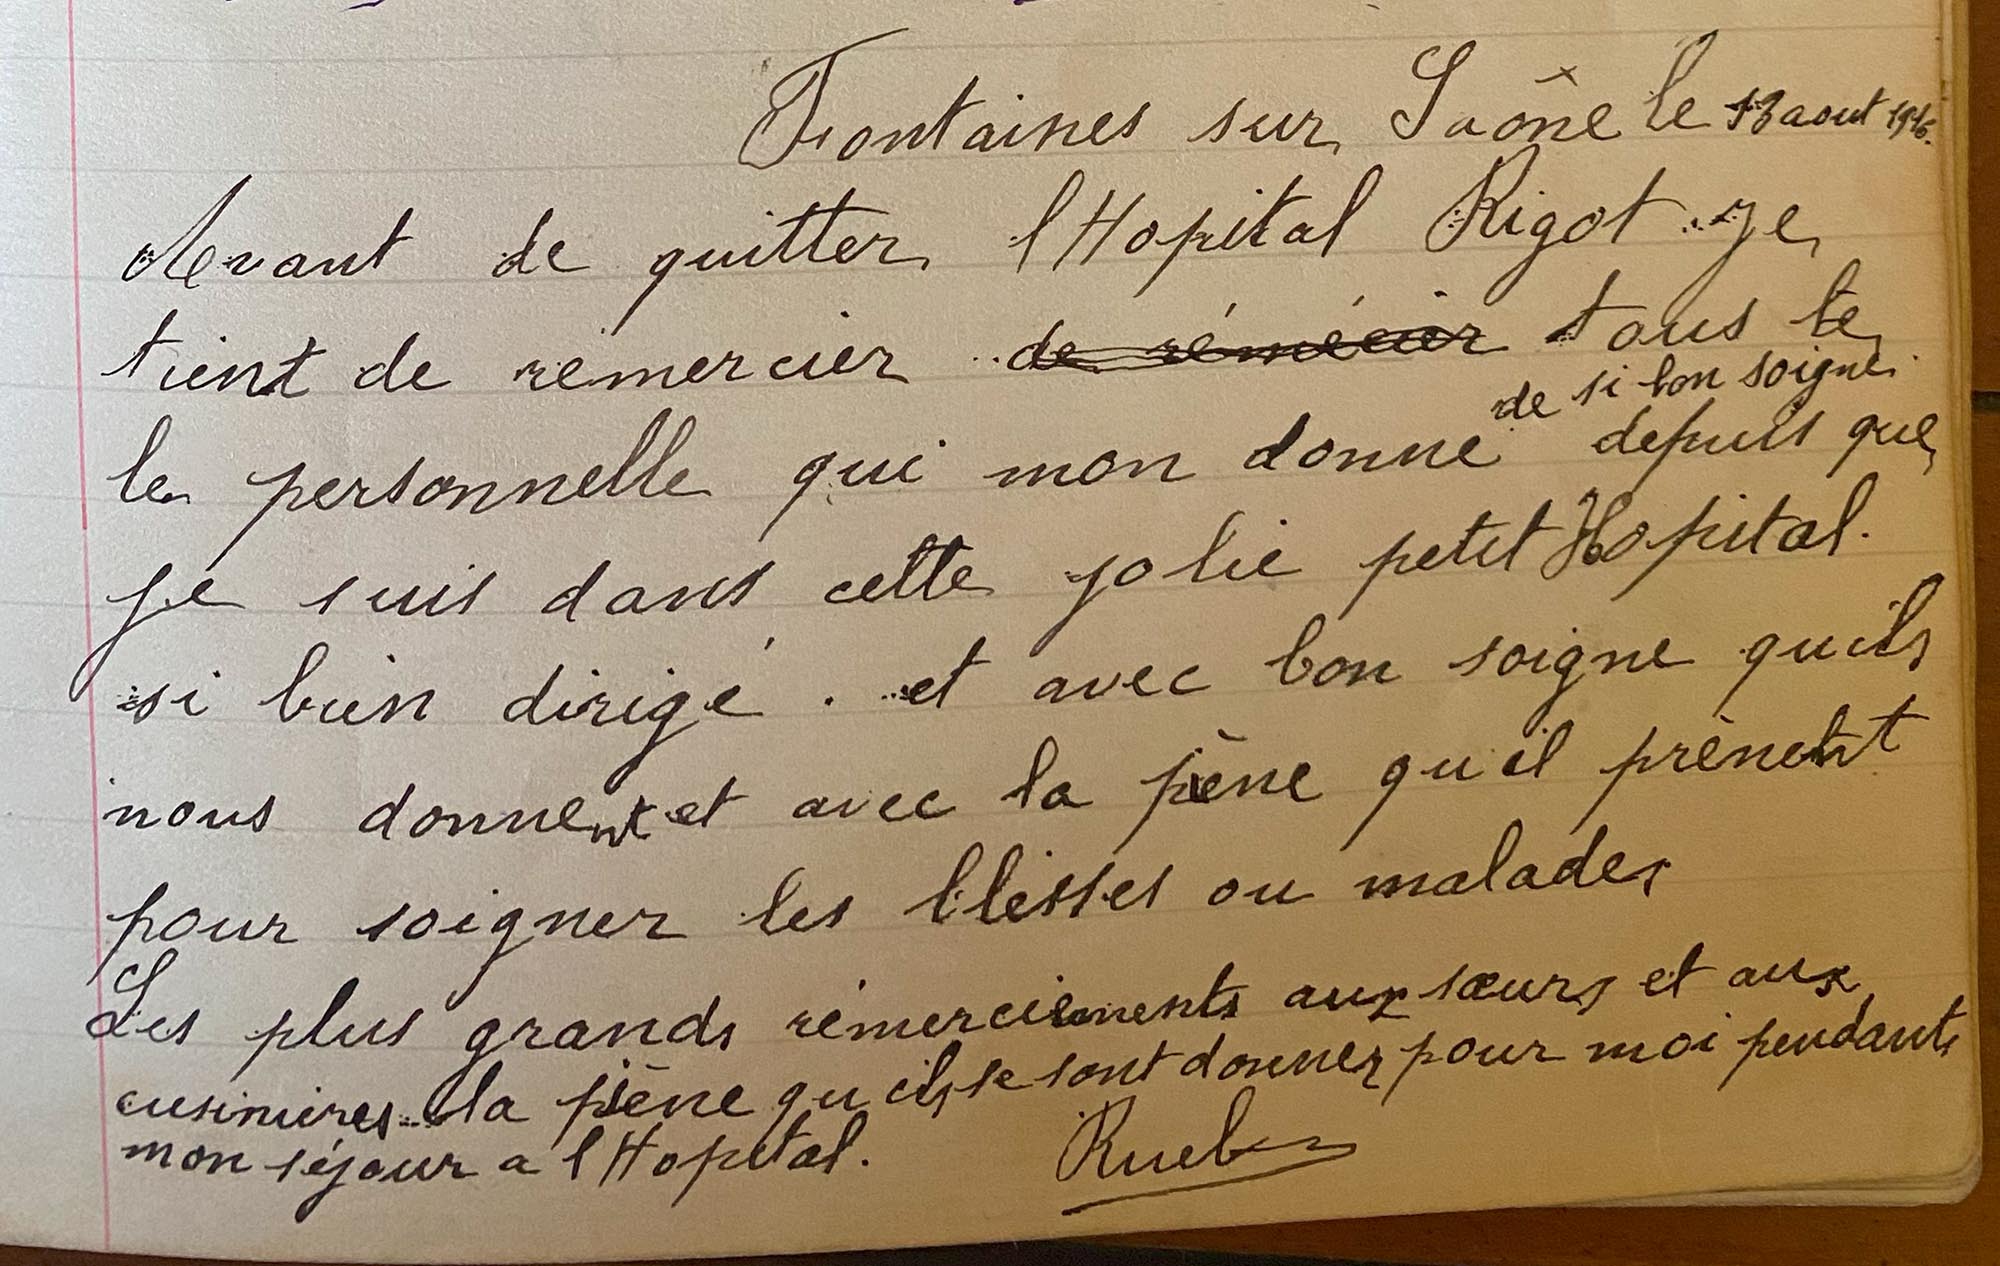 Fontaines sur Saône le 13 aout 1916.
Avant de quitter l'Hopital Rigot. je
tient de remercier de rémécier tous le
de si bon soigne.
le personnelle qui mon donne depuis que
je suis dans cette jolie petit Hopital.
si bien dirigé. et avec bon soigne qu'ils
nous donnent et avec la pène qu'il prènent
pour soigner les blesses ou malades
Les plus grands rémerciements aux sœurs et aux
cusinières la pène qu'ils se sont donner pour moi pendants
mon séjour a l'Hopital. Ruel